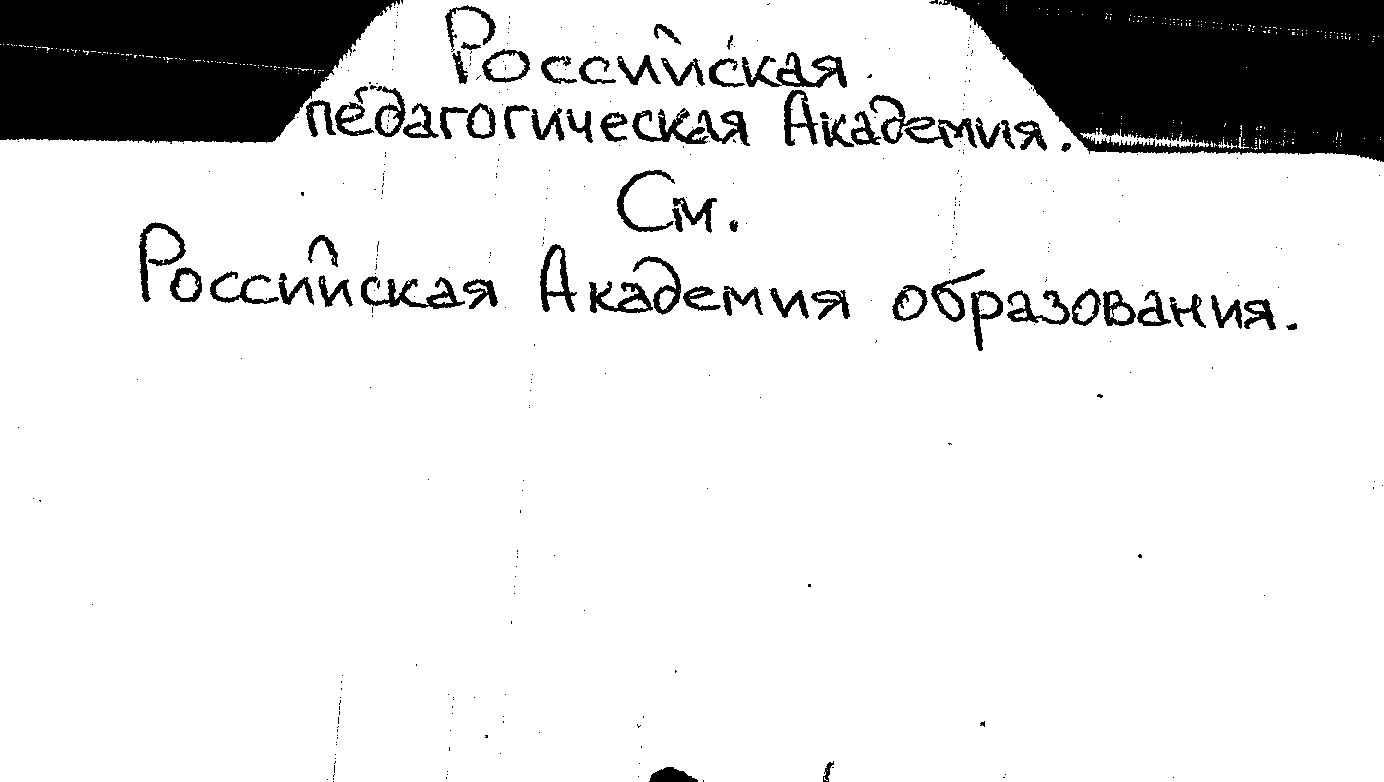 Российская
педагогическая Академия.
См.
Российская Академия образования.